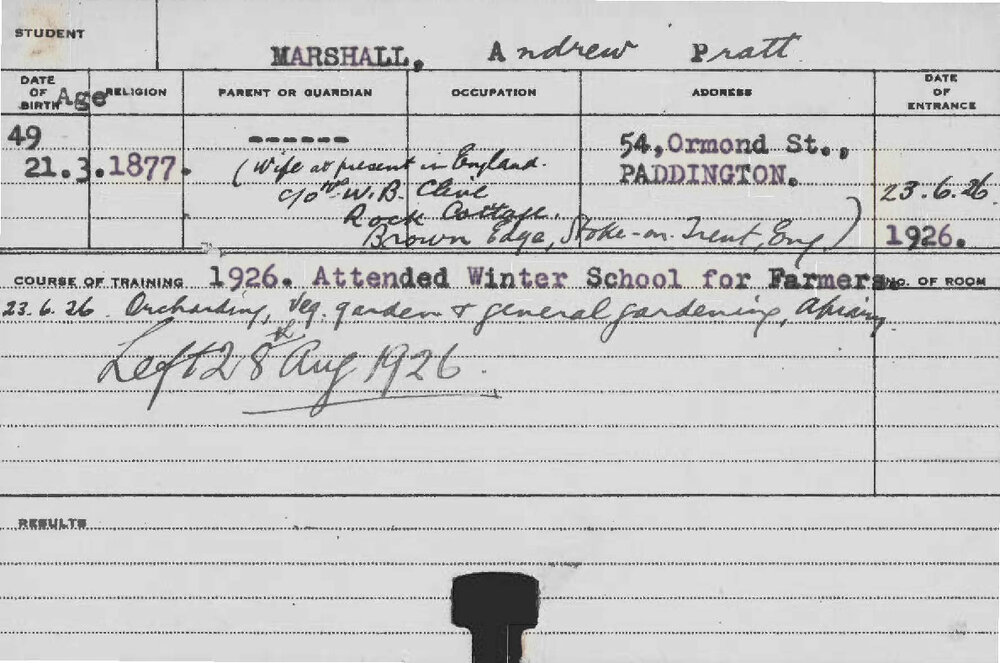 STUDENT
MARSHALL, Andrew Pratt.
DATE OF BIRTH Age RELIGION PARENT OR GUARDIAN OCCUPATION ADDRESS DATE OF ENTRANCE
49 ------ 54, Ormond St.,
21.3.1877. (Wife at present in England. PADDINGTON. 23.6.26.
c/o Mr. W. B. Clive
Rock Cottage,
Brown Edge, Stoke-on-Trent, Eng) 1926.
COURSE OF TRAINING 1926. Attended Winter School for Farmers NO. OF ROOM
23.6.26 Orcharding, Veg. garden & general gardening, Apiary.
Left 28th Aug 1926.
RESULTS